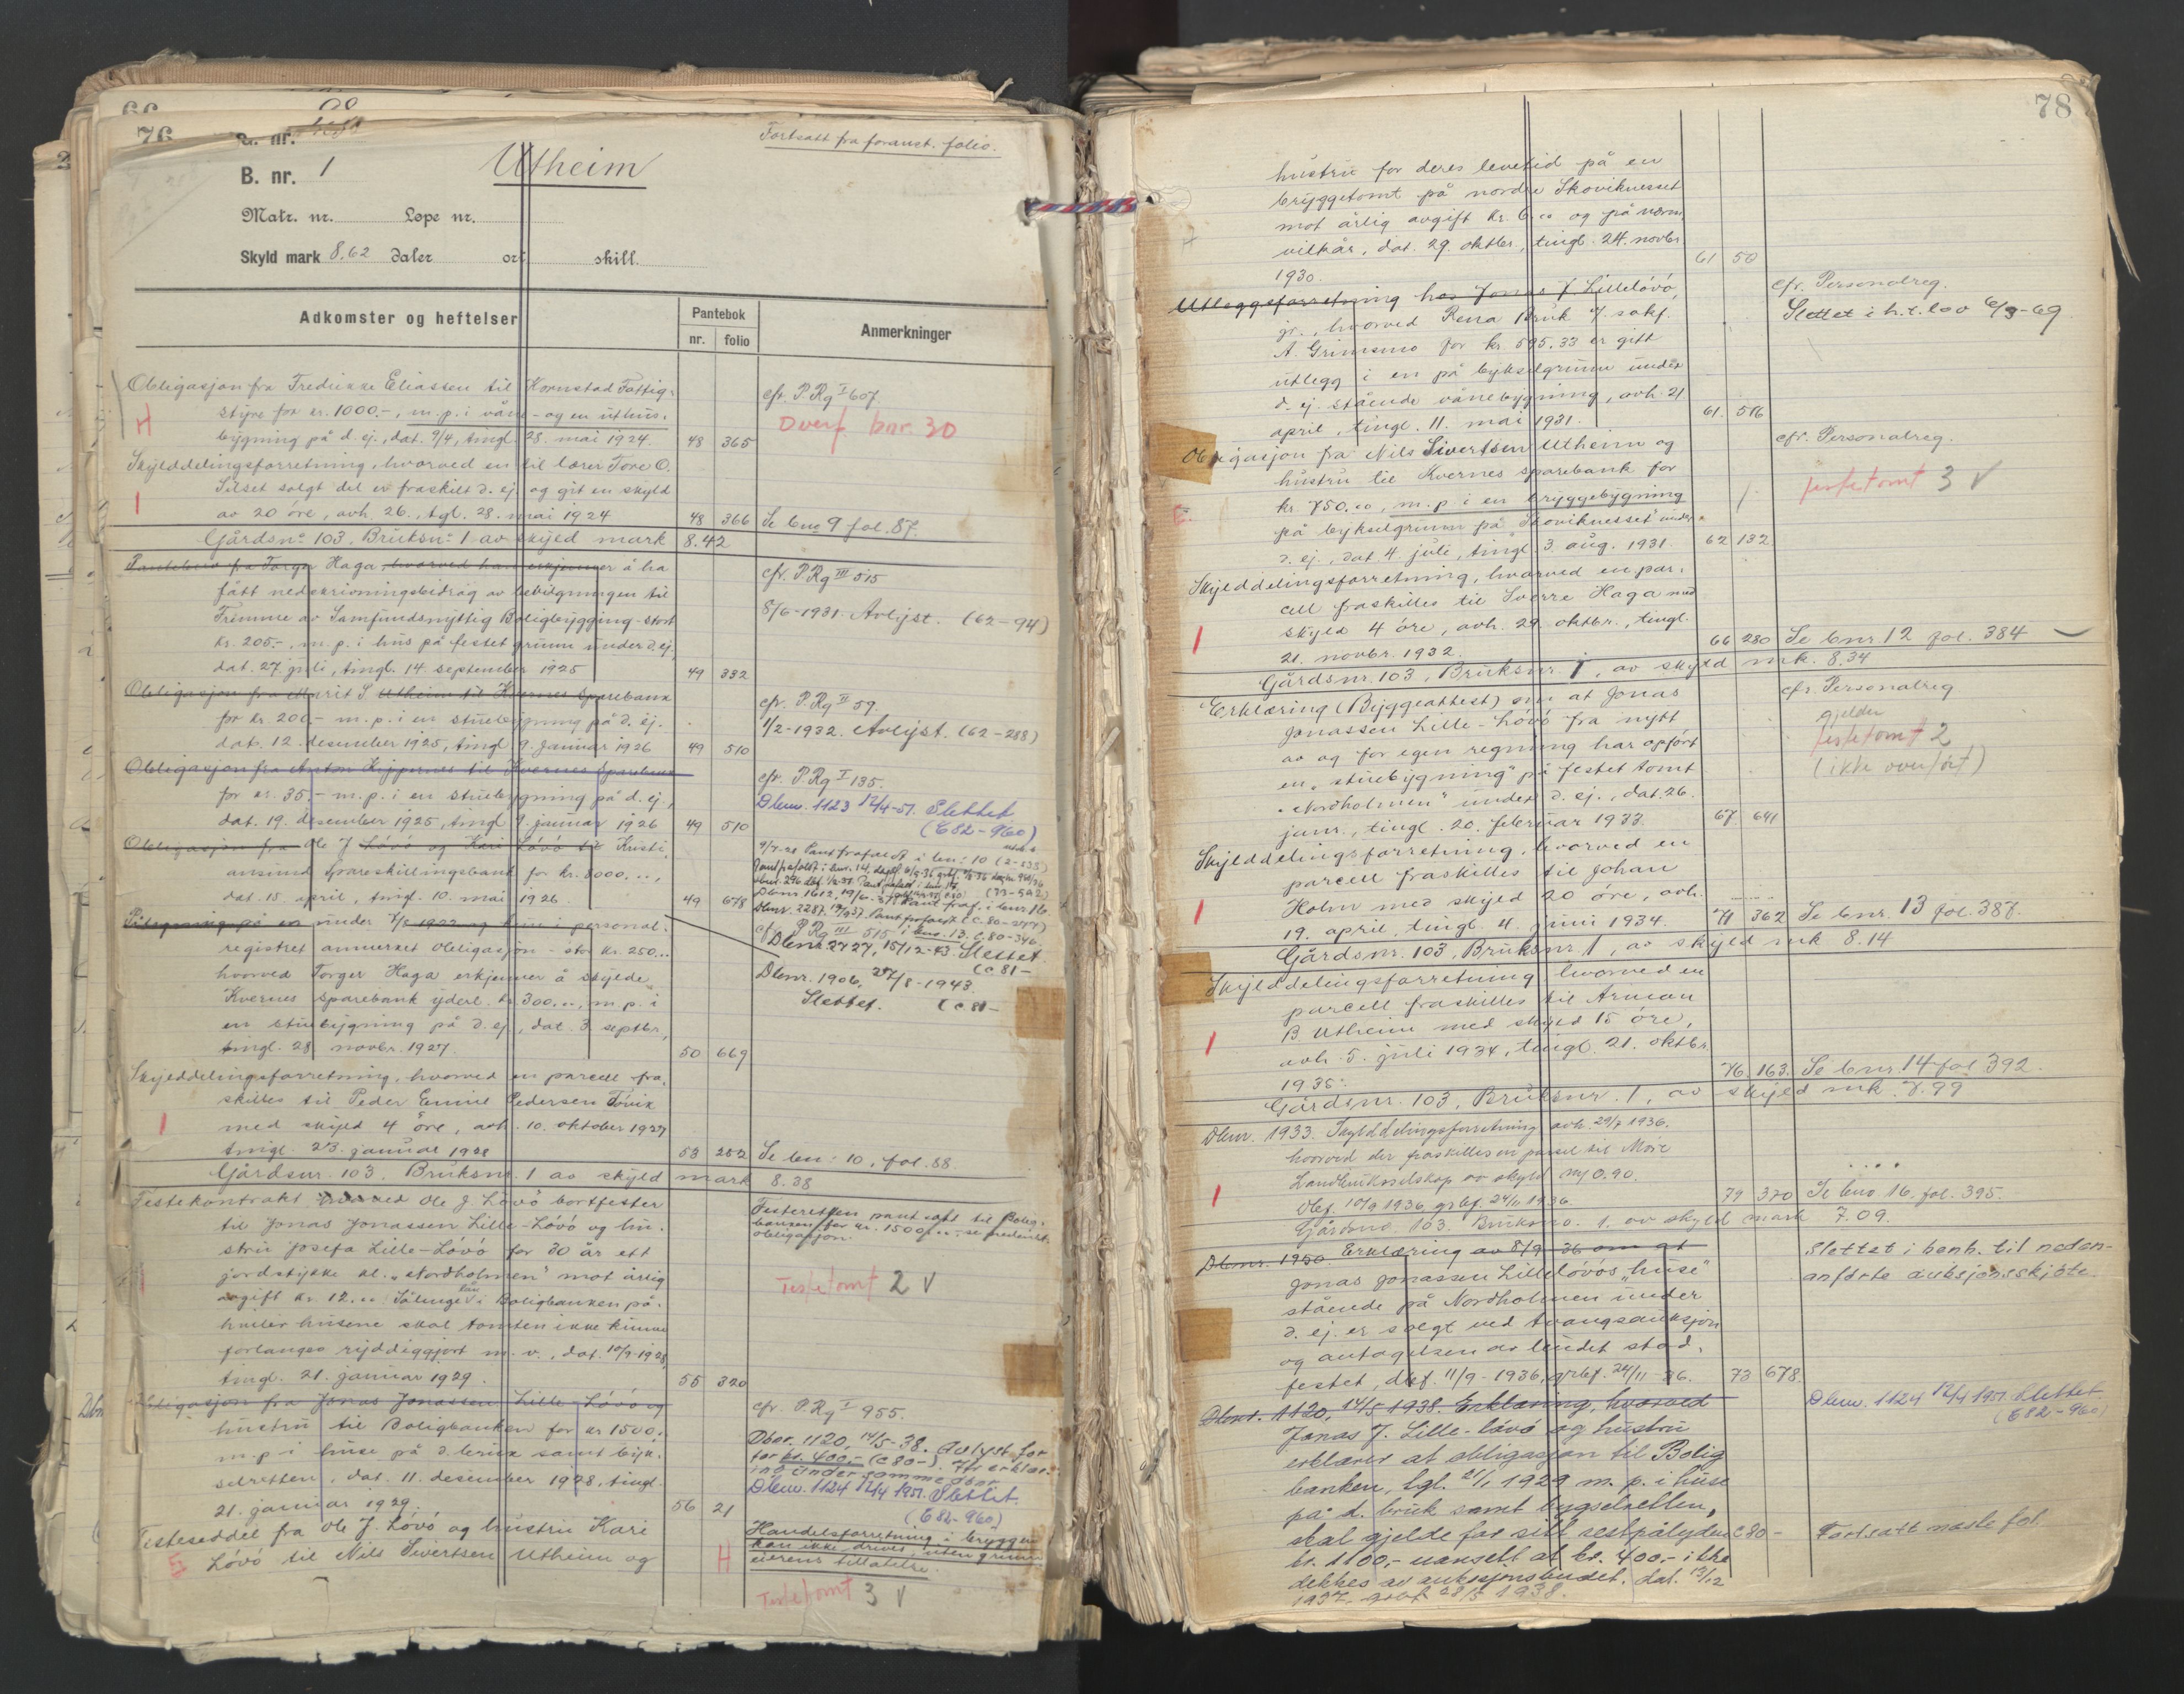 66
76
G. nr.
B. nr. 1
Utheim
Fortsatt fra foranst. folio.
Matr. nr. Løpe nr.
Skyld mark 8,62 daler ort skill.
Adkomster og heftelser
Pantebok
nr. folio
Anmerkninger
Obligasjon fra Fredrikke Eliassen til Kornstad Fattig-
styre for kr. 1000.-, m.p. i våne- og en uthus-
bygning på d. ej., dat. 9/4, tingl. 28. mai 1924. 48 365
H
cfr. P.Rg I 607.
Overf. bnr. 30
Skylddelingsforretning, hvorved en til lærer Tore O.
Silset solgt del er fraskilt d. ej. og git en skyld
av 20 öre, avh. 26., tgl. 28. mai 1924 48 366 Se bnr 9 fol. 87.
Gårdsnº 103, Bruksnº 1 av skyld mark 8.42
Pantebrev fra Torger Haga, hvorved han erkjenner å ha
fått nedskrivningsbidrag av bevilgningen til
Fremme av Samfundsnyttig Boligbygging - stort
kr. 205.-, m.p. i hus på festet grunn under d. ej.,
dat. 27. juli, tingl. 14. september 1925 49 332
cfr. P.Rg III 515
8/6-1931. Avlyst. (62-94)
Obligasjon fra Marit S Utheim til Kvernes Sparebank
for kr. 200.- m.p. i en stuebygning på d. ej.
dat. 12. desember 1925, tingl. 9. januar 1926 49 510
cfr. P.Rg II 59.
1/2-1932. Avlyst. (62-288)
Obligasjon fra Anton Kippernes til Kvernes Sparebank
for kr. 35.- m.p. i en stuebygning på d. ej.,
dat. 19. desember 1925, tingl. 9. januar 1926 49 510
cfr. P.Rg I 135.
Dbnr. 1123 12/4-51. Slettet
(C 82-960)
Obligasjon fra Ole J Lövö og Kari Lövö til Kristi-
ansund Spareskillingsbank for kr. 8000,..,
dat. 15. april, tingl. 10. mai 1926 49 678
Dbnr. 2727, 15/12-43 Slettet
(C 81-
Påtegning på en under
registret anmerket obligasjon - stor kr. 250..
hvorved Torger Haga erkjenner å skylde
Kvernes Sparebank yderl. kr. 300.., m.p. i
en stuebygning på d. ej., dat. 3 septbr,
tingl. 28 novbr. 1927. 50 669
cfr. P.Rg III 515
Dbnr. 1906, 27/8-1943.
Slettet. (C 81-
Skylddelingsforretning, hvorved en parcell fra-
skilles til Peder Emil Pedersen Tövik
med skyld 4 öre, avh. 10. oktober 1927
tingl. 23. januar 1928 53 252 Se bnr: 10, fol. 88.
Gårdsnr. 103. Bruksnr. 1 av skyld mark 8.38
Festekontrakt hvorved Ole J Lövö bortfester
til Jonas Jonassen Lille-Lövö og hu-
stru Josefa Lille-Lövö for 30 år ett
jordstykke kl. „Nordholmen" mot årlig
avgift kr. 12... Sålenge lån i Boligbanken på-
hviler husene skal tomten ikke kunne
forlanges ryddiggjort m.v., dat. 10/9-1928,
tingl. 21. januar 1929. 55 320
Festeretten pantsatt til Bolig-
banken for kr. 1500,.., se nedenst.
obligasjon.
Festetomt 2 V
Obligasjon fra Jonas Jonassen Lille-Lövö og
hustru til Boligbanken for kr 1500.-
m.p. i huse på d. bruk samt byk-
selretten, dat. 11. desember 1928, tingl.
21. januar 1929. 56 21
cfr. P.Rg I 955.
Dbnr. 1120, 14/5-38. Avlyst for
kr. 400,- (C 80-).
Dbnr. 1124 12/4 1951. Slettet.
(C 82-960)
Festeseddel fra Ole J. Lövö og hustru Kari
Lövö til Nils Sivertsen Utheim og
H
Handelsforretning i bryggen
kan ikke drives uten grunn-
eierens tillatelse.
Festetomt 3 V
78
hustru for deres levetid på en
bryggetomt på nordre Skovikneset
mot årlig avgift kr. 6.00 og på nærm.
vilkår, dat. 29. oktbr., tingl. 24. novbr.
1930. 61 50
Utleggsforretning hos Jonas J. Lillelövö,
jr., hvorved Rena Bruk v/ sakf.
A. Grimsmo for kr. 595.33 er gitt
utlegg i en på bykselgrunn under
d. ej. stående vånebygning, avh. 21
april, tingl. 11. mai 1931. 61. 516
cfr. Personalreg.
Slettet i h.t. lov 6/9-69
Obligasjon fra Nils Sivertsen Utheim og
hustru til Kvernes Sparebank for
kr. 750.00, m.p. i en bryggebygning
på bykselgrunn på "Skovikneset" under
d. ej., dat 4. juli, tingl. 3. aug. 1931. 62 132
cfr. Personalreg.
festetomt 3 V
Skylddelingsforretning, hvorved en par-
cell fraskilles til Sverre Haga med
skyld 4 öre, avh. 29. oktbr., tingl.
21. novbr. 1932. 66 280 Se bnr. 12 fol. 384
Gårdsnr. 103, Bruksnr. 1, av skyld mk. 8.34
Erklæring (Byggeattest) om at Jonas
Jonassen Lille-Lövö fra nytt
av og for egen regning har opført
en „stuebygning" på festet tomt
„Nordholmen" under d. ej., dat. 26.
janr., tingl. 20. februar 1933. 67 641
cfr. Personalreg
gjelder
festetomt 2
(ikke overført)
Skylddelingsforretning, hvorved en
parcell fraskilles til Johan
Holm med skyld 20 öre, avh.
19. april, tingl. 4. juni 1934. 71 362 Se bnr. 13 fol. 387.
Gårdsnr. 103, Bruksnr. 1, av skyld mk 8.14
Skylddelingsforretning hvorved en
parcell fraskilles til Arman
B Utheim med skyld 15 öre,
avh. 5. juli 1934, tingl. 21. oktbr.
1935. 76. 163. Se bnr. 14 fol 392.
Gårdsnr. 103, Bruksnr. 1, av skyld mk. 7.99
Dbnr. 1933. Skylddelingsforretning avh. 29/7 1936,
hvorved der fraskilles en parsel til Møre
Landbruksselskap av skyld m/ 0.90.
Dbf. 10/9 1936, grbf. 24/11 1936 79 370 Se bno 16. fol. 395.
Gårdsno 103. Bruksno. 1. av skyld mark 7.09.
Dbnr. 1950 Erklæring av 8/9 36 om at
Jonas Jonassen Lillelövös „huse"
stående på Nordholmen under
d. ej. er solgt ved tvangsauksjon
og antagelsen av budet stad-
festet, dbf. 11/9-1936, grbf. 24/11-36. 73 678.
Slettet i henh. til neden-
anförte auksjonsskjöte.
Dbnr. 1120, 14/5 1938. Erklæring, hvorved
Jonas J. Lille-lövö og hustru
erklærer at obligasjon til Bolig
banken, tgl. 21/1 1929 m. p. i huse
på d. bruk samt bygselretten,
skal gjelde for sitt restpålydende C 80-
kr. 1100,- uansett at kr. 400,- ikke
dekkes av auksjonsbudet. dat. 13/12
1937. grbf 28/5 1938.
Dbnr. 1124 12/4 1951. Slettet
(C 82-960)
Fortsatt næste fol.